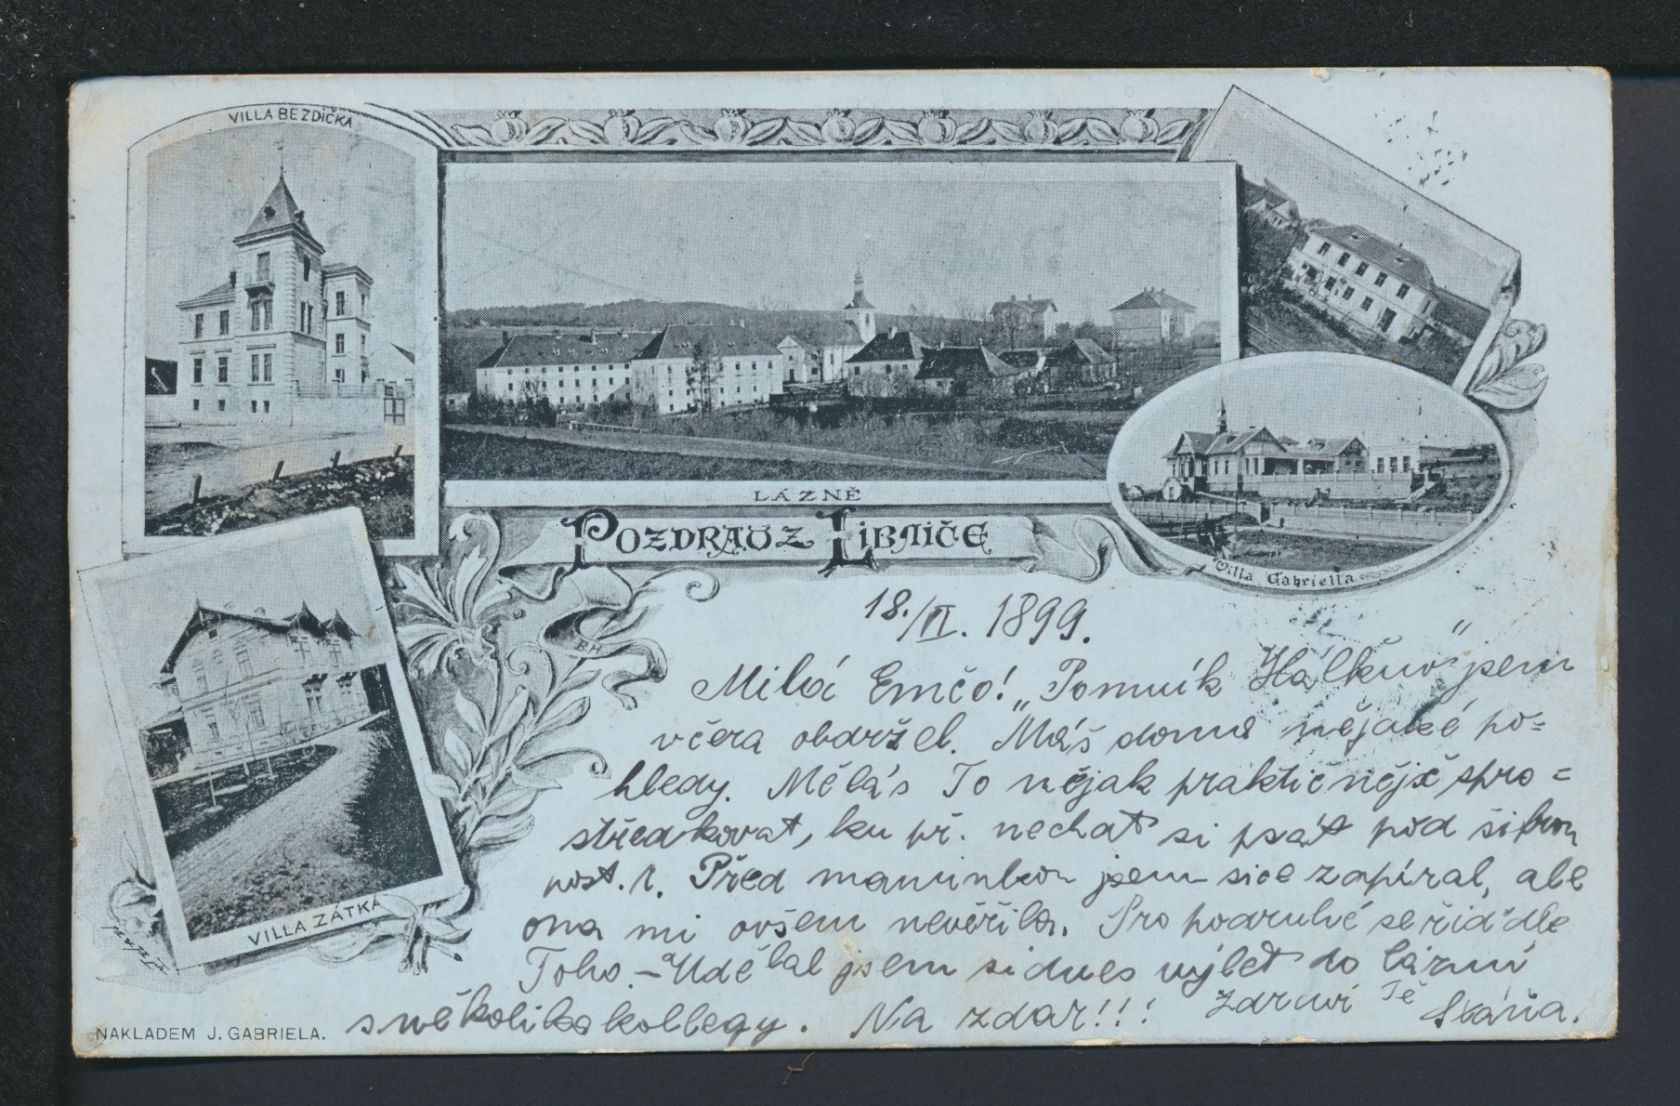 VILLA BEZDIČKA
LÁZNĚ
POZDRAV Z LIBNIČE
Villa Gabriella
BH
18./II. 1899.
Milá Emčo! „Pomník Hálkův" jsem
včera obdržel. Máš doma nějaké po=
hledy. Mělás To nějak praktičnějš spro=
středkovat, ku př. nechat si psát pod šifrou
post. r. Před maminkou jsem sice zapíral, ale
ona mi ovšem nevěřila. Pro podruhé se řiď dle
Toho. – Udělal jsem si dnes výlet do lázní
s několika kollegy. Na zdar!!! Zdraví Tě Stáňa.
VILLA ZÁTKA
NAKLADEM J. GABRIELA.